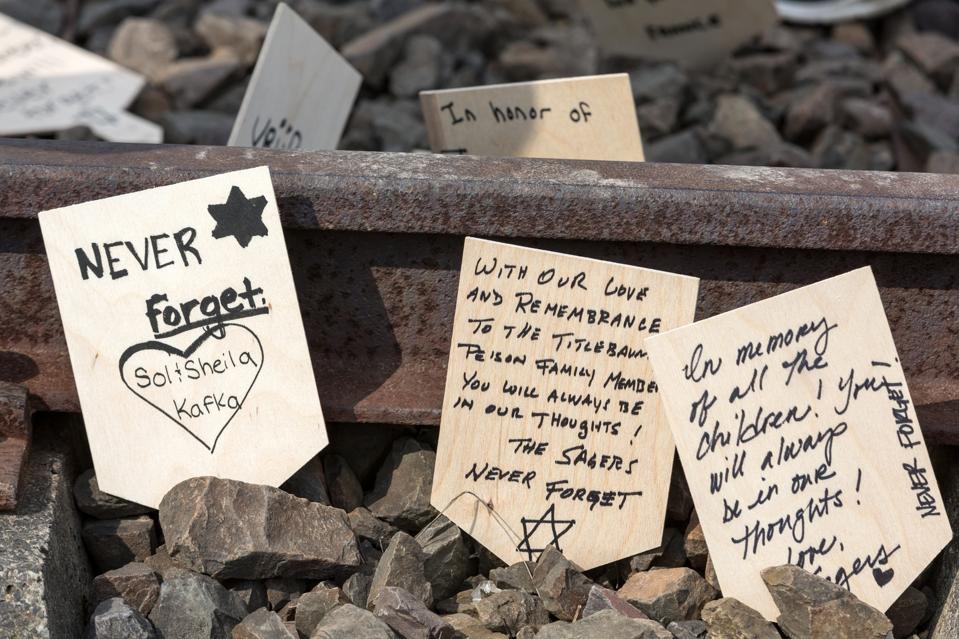 In honor of
NEVER
Forget.
Sol+Sheila
Kafka
WITH OUR LOVE
AND REMEMBRANCE
TO THE TITLEBAUM
PEISON FAMILY MEMBE
YOU WILL ALWAYS BE
IN OUR THOUGHTS!
THE SAGERS
NEVER FORGET
In memory
of all the
children! You
will always
be in our
thoughts!
Love,
NEVER FORGET!